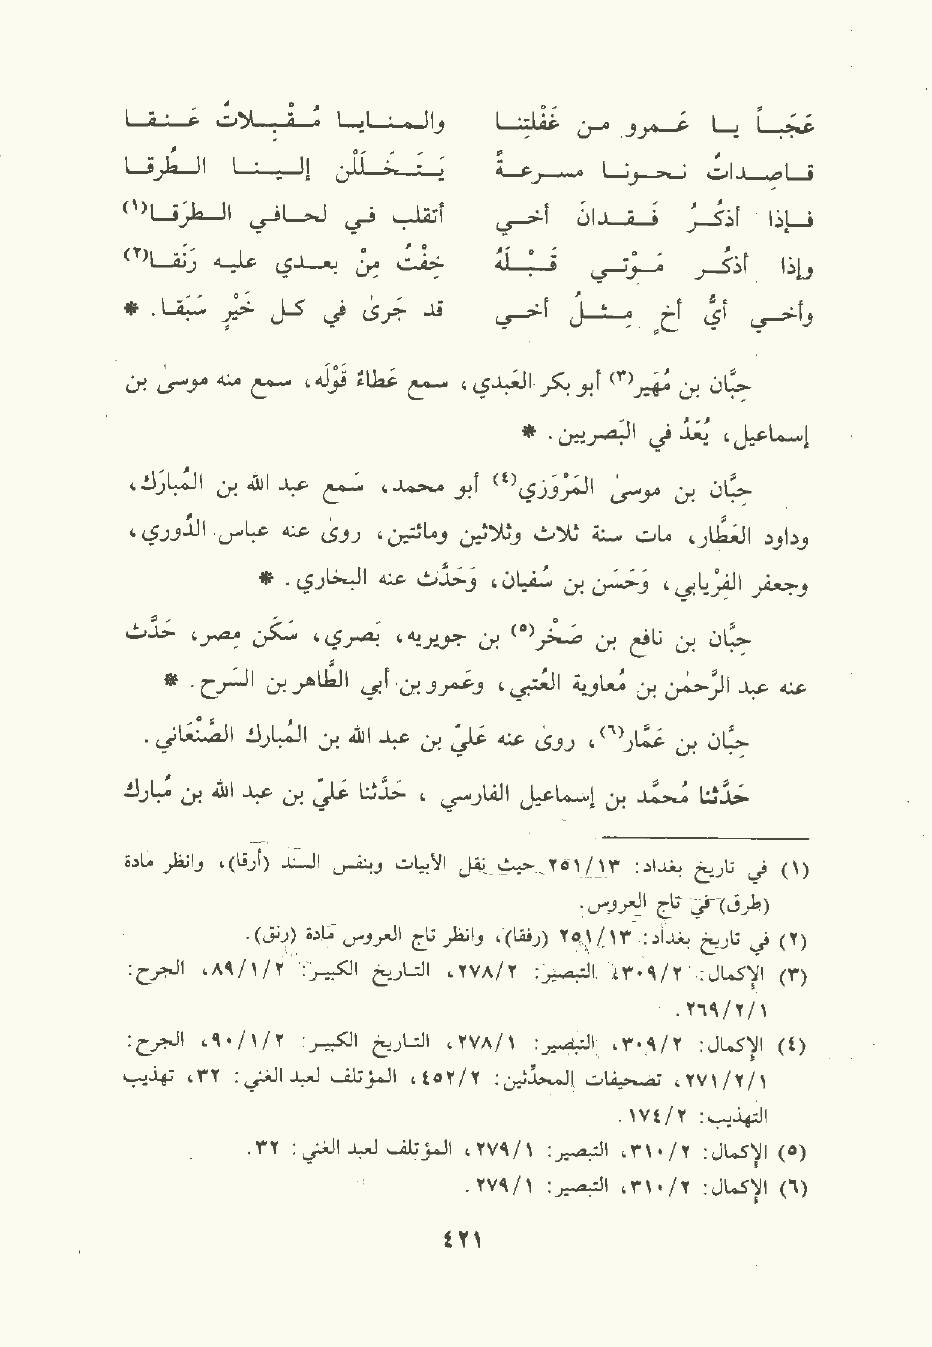 عَجَبــاً يــا عَــمرو مــن غَفْلتِنــا والــمنــايــا مُــقْــبِــلاتٌ عَــنــقــا
قــاصِــداتٌ نــحــونــا مــســرعــةً يَــتَــخَــلَّلْنَ إلــيــنــا الــطُّرقــا
فــإذا أذكُــر فــقــدان أخــي أتقلب فــي لحــافــي الــطــرَقــا(١)
وإذا أذكــر مَــوْتــي قَــبْــلَهُ خِفْتُ مِنْ بعــدي عليه رَنَقــا(٢)
وأخــي أيُّ أخٍ مِــثــلُ أخــي قد جَرىٰ في كــل خَيْرٍ سَبَقــا. *
حِبّان بن مُهَير(٣) أبو بكر العَبدي، سمع عَطاءً قَوْلَه، سمع منه موسىٰ بن
إسماعيل، يُعَدُ في البَصريين. *
حِبّان بن موسىٰ المَرْوَزي(٤) أبو محمد، سَمع عبد الله بن المُبارَك،
وداود العَطَّار، مات سنة ثلاث وثلاثين ومائتين، روىٰ عنه عباس الدُوري،
وجعفر الفِرْيابي، وحَسَن بن سُفيان، وحَدَّث عنه البخاري. *
حِبّان بن نافع بن صَخْر(٥) بن جويريه، بَصري، سَكَن مِصر، حَدَّث
عنه عبد الرَّحمٰن بن مُعاوية العُتبي، وعَمرو بن أبي الطَّاهر بن السَرح. *
حِبّان بن عَمَّار(٦)، روىٰ عنه عَليّ بن عبد الله بن المُبارك الصَّنْعَاني.
حَدَّثنا مُحمَّد بن إسماعيل الفارسي، حَدَّثنا عَليّ بن عبد الله بن مُبارك
(١) في تاريخ بغداد: ٢٥١/١٣ حيث نقل الأبيات وبنفس السند (أرقا)، وانظر مادة
(طرق) في تاج العروس.
(٢) في تاريخ بغداد: ٢٥١/١٣ (رفقا)، وانظر تاج العروس مادة (رنق).
(٣) الإكمال: ٣٠٩/٢، التبصير: ٢٧٨/٢، التاريخ الكبير: ٨٩/١/٢، الجرح:
٢٦٩/٢/١.
(٤) الإكمال: ٣٠٩/٢، التبصير: ٢٧٨/١، التاريخ الكبير: ٩٠/١/٢، الجرح:
٢٧١/٢/١، تصحيفات المحدّثين: ٤٥٢/٢، المؤتلف لعبد الغني: ٣٢، تهذيب
التهذيب: ١٧٤/٢.
(٥) الإكمال: ٣١٠/٢، التبصير: ٢٧٩/١، المؤتلف لعبد الغني: ٣٢.
(٦) الإكمال: ٣١٠/٢، التبصير: ٢٧٩/١.
٤٢١